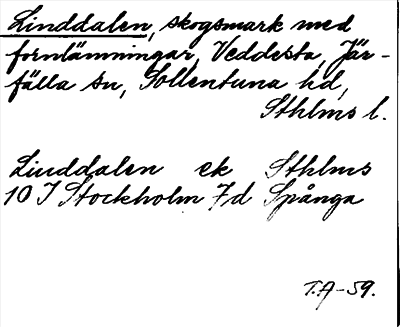 Linddalen, skogsmark med
fornlämningar, Veddesta, Jär-
fälla sn, Sollentuna hd,
Sthlms l.
Linddalen ek Sthlms
10 I Stockholm 7d Spånga
T.A-59.